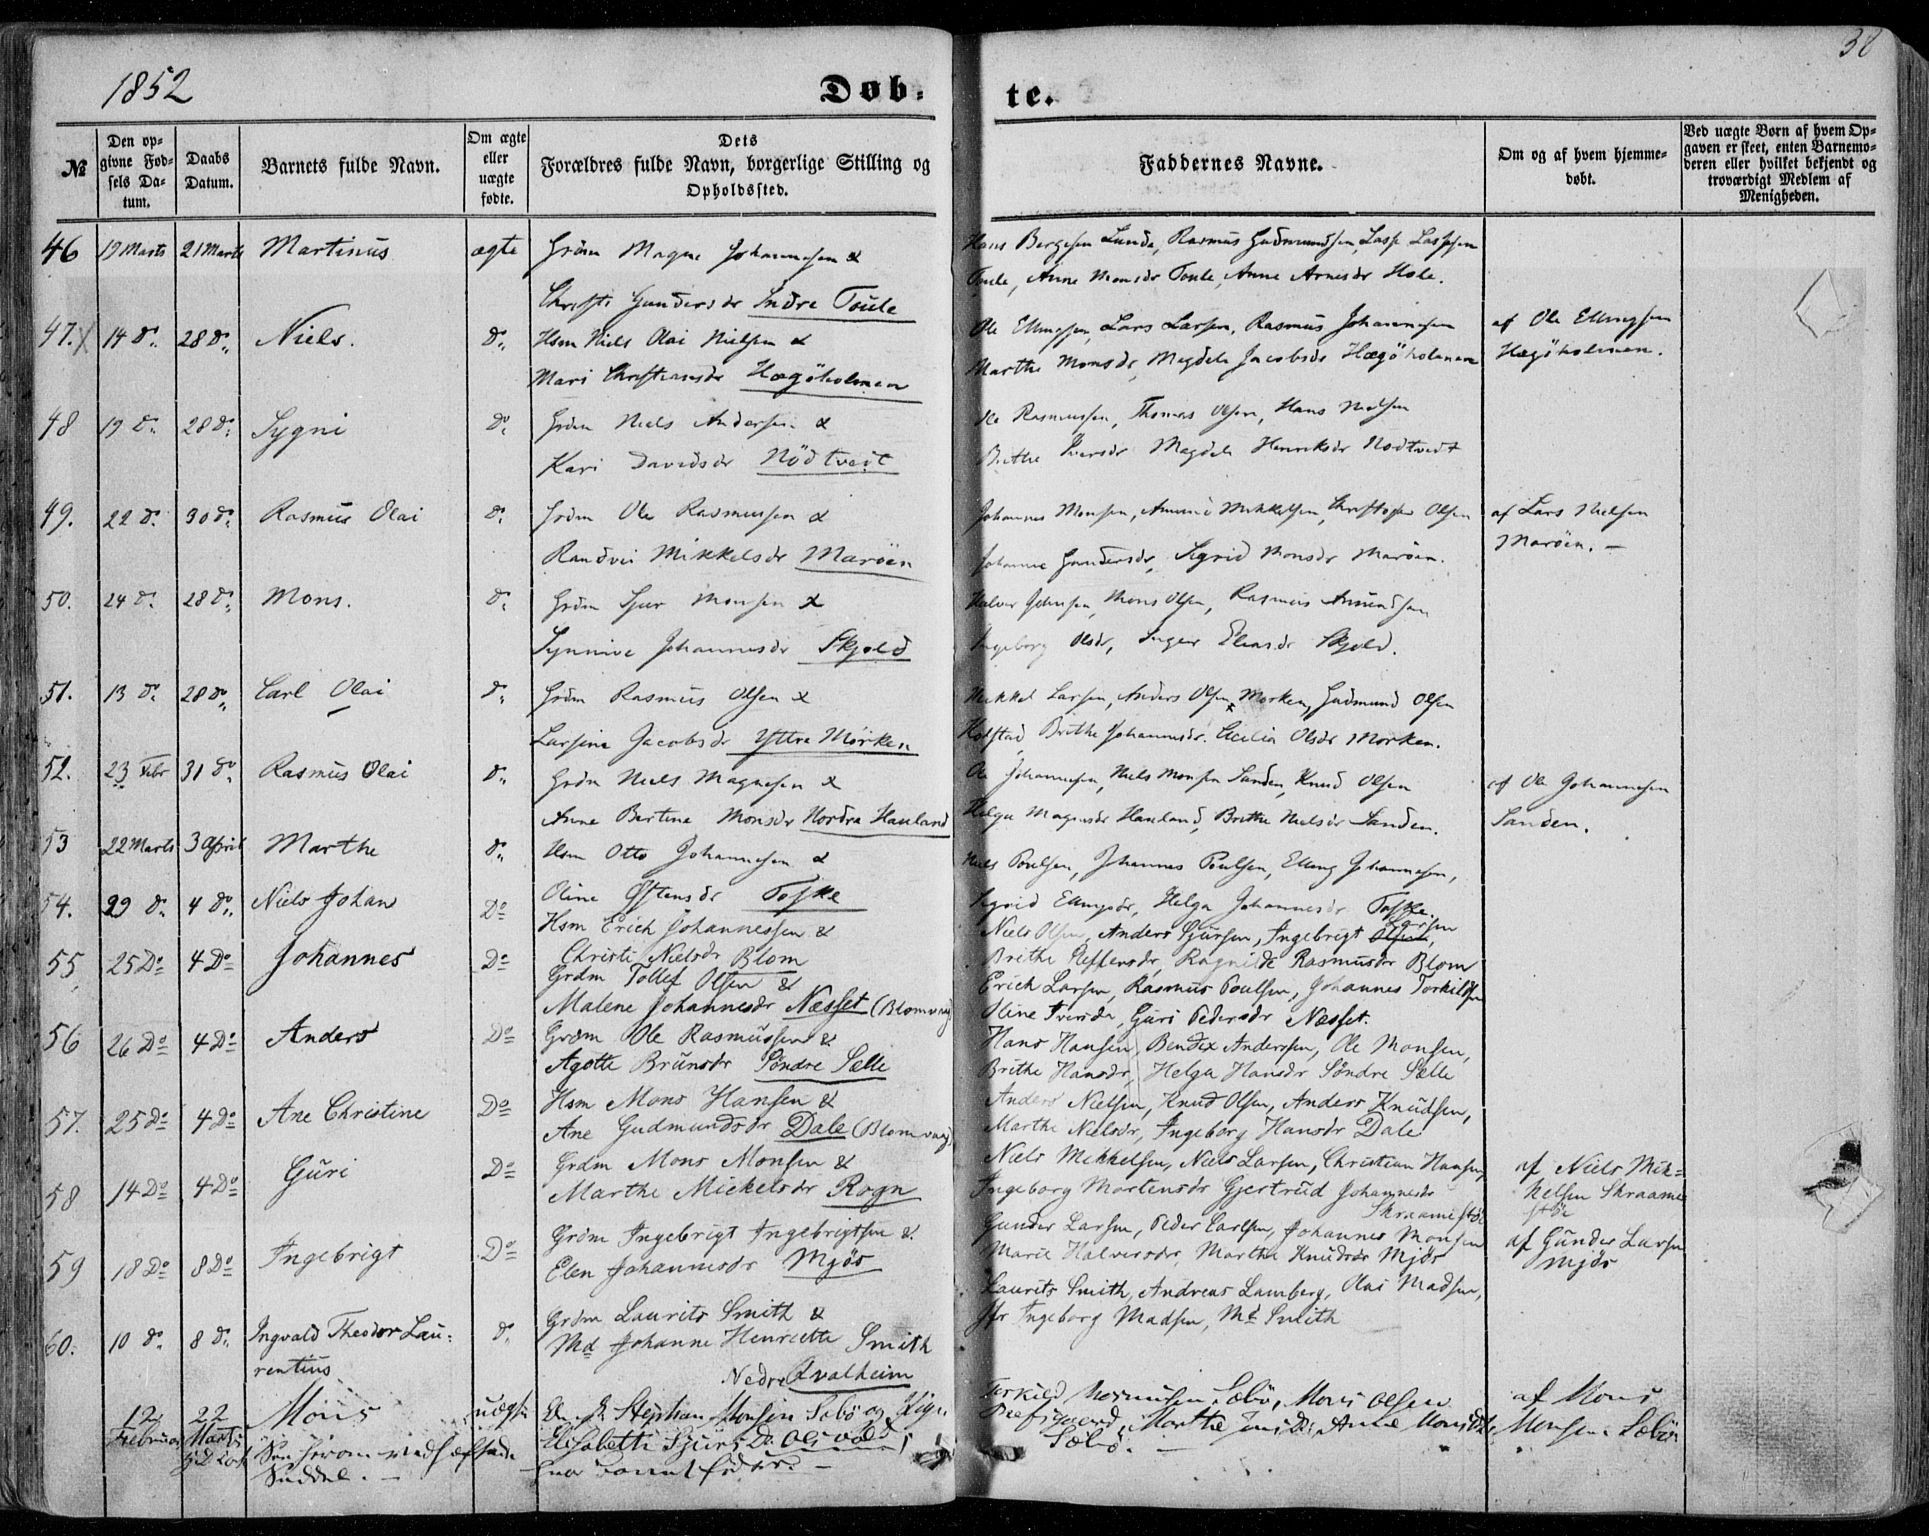 1852
38
Døb-
te.
№
Den op-
givne Fød-
sels Da-
tum.
Daabs
Datum.
Barnets fulde Navn.
Om ægte
eller
uægte
fødte.
Dets
Forældres fulde Navn, borgerlige Stilling og
Opholdssted.
Faddernes Navne.
Om og af hvem hjemme-
døbt.
Ved uægte Børn af hvem Op-
gaven er skeet, enten Barnemo-
deren eller hvilket bekjendt og
troværdigt Medlem af
Menigheden.
46 19 Marts 21 Marts Martinus ægte Grdm Magne Johannesen &
Christi Gundersdr Indre Toule
Hans Børgesen Lunde, Rasmus Gudmundsen, Lasse Lassesen
Toule, Anne Monsdr Toule, Anne Arnesdr Hole.
47. 14 do. 28 do. Niels. do. Hsm Niels Olai Nielsen &
Mari Christiansdr Hægøholmen
Ole Ellingsen, Lars Larsen, Rasmus Johannesen
Marthe Monsdr, Magdele Jacobsdr Hægøholmen
af Ole Ellingsen
Hægøholmen.
48 19 do. 28 do. Sygni do. Grdm Niels Andersen &
Kari Davidsdr Nödtvedt
Ole Rasmussen, Thomas Olsen, Hans Nielsen
Brithe Iversdr Magdele Henriksdr Nodtvedt
49. 22 do. 30 do. Rasmus Olai do. Grdm Ole Rasmussen &
Randvei Mikkelsdr Marøen
Johannes Monsen, Amund Mikkelsen, Christopher Olsen
Johanne Gundersdr, Sigrid Monsdr Marøen.
af Lars Nielsen
Marøen. —
50. 24 do. 28 do. Mons. do. Grdm Sjur Monsen &
Synnive Johannesdr Skjold
Halvor Johnsen, Mons Olsen, Rasmus Amundsen
Ingeborg Olsdr, Inger Eliasdr Skjold.
51. 13 do. 28 do. Carl Olai do. Grdm Rasmus Olsen &
Larsine Jacobsdr Yttre Mørken
Mikkel Larsen, Anders Olsen Mørken, Gudmund Olsen
Holstad, Brithe Johannesdr. Cecilia Olsdr Mørken.
52. 23 Febr 31 do. Rasmus Olai do. Grdm Niels Magnesen &
Anne Bertine Monsdr Nordre Hauland
Ole Johannesen, Niels Monsen Sanden, Knud Olsen
Helga Magnesdr Hauland, Brithe Nielsdr Sanden.
af Ole Johannesen
Sanden.
53 22 Marts 3 April Marthe do. Hsm Otto Johannesen &
Oline Østensdr Toske
Niels Poulsen, Johannes Poulsen, Elling Johannesen,
Sigrid Ellingsdr, Helga Johannesdr Toske.
54. 29 do. 4 do. Niels Johan Do Hsm Erich Johannessen &
Christi Nielsdr Blom
Larsen
Niels Olsen, Anders Sjursen, Ingebrigt Olsen,
Brithe Steffensdr, Ragnilde Rasmusdr Blom
55 25 Do 4 Do Johannes Do Grdm Tollef Olsen &
Malene Johannesdr Næsset (Blomvaag)
Erich Larsen, Rasmus Poulsen, Johannes Torkildsen
Oline Iversdr, Guri Pedersdr Næsset.
56 26 Do 4 Do Anders Do Grdm Ole Rasmussen &
Agotte Brunsdr Söndre Sælle
Hans Hansen, Bendix Andersen, Ole Monsen,
Brithe Hansdr, Helga Hansdr Söndre Sælle
57. 25 Do 4 Do Ane Christine Do Hsm Mons Hansen &
Ane Gudmundsdr Dale (Blomvaag)
Anders Nielsen, Knud Olsen, Anders Knudsen,
Marthe Nielsdr, Ingeborg Hansdr Dale
58 14 Do 4 Do Guri Do Grdm Mons Monsen &
Marthe Mickelsdr Rogn
Niels Mikkelsen, Niels Larsen, Christian Hansen
Ingeborg Mortensdr Gjertrud Johannesdr
Skraamestøe
af Niels Mik-
kelsen Skraame
støe
59 18 Do 8 Do Ingebrigt Do Grdm Ingebrigt Ingebrigtsen &
Elen Johannesdr Mjös
Gunder Larsen, Peder Carlsen, Johannes Monsen
Marie Halversdr, Marthe Knudsdr Mjös
af Gunder Larsen
Mjös
60. 10 do. 8 do. Ingvald Theodor Lau-
rentius do. Grdm Laurits Smith &
Md Johanne Henriette Smith
Nedre Qvalheim
Laurits Smith, Andreas Lamberg, Olai Madsen,
Jfr Ingeborg Madsen, Md Smith
12
Februar
22
Marts
Mons
uægte
Stephan Monsen Sæbø og Pige
Elisabeth Sjurs Dr Olsvold
Torkild Rasmussen Sæbø, Mons Olsen
Marthe Jens Dr, Anne Mons Dtr,
Sæbø. —
af Mons
Monsen Sæbø